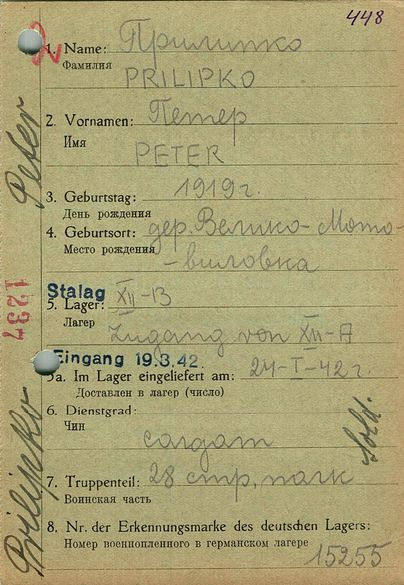 448
2
1. Name: Прилипко
Фамилия
PRILIPKO
2. Vornamen: Петер
Имя
PETER
3. Geburtstag: 1919 г.
День рождения
4. Geburtsort: дер. Велико-Мото-
Место рождения
-виловка
Stalag
5. Lager: XII-B
Лагер
Zugang von XII-A
Eingang 19.3.42.
5a. Im Lager eingeliefert am: 24-I-42 г.
Доставлен в лагер (число)
6. Dienstgrad:
Чин
солдат
Sold.
7. Truppenteil: 28 стр, полк
Воинская часть
8. Nr. der Erkennungsmarke des deutschen Lagers:
Номер военнопленного в германском лагере
15255
Prilipko Peter
1237